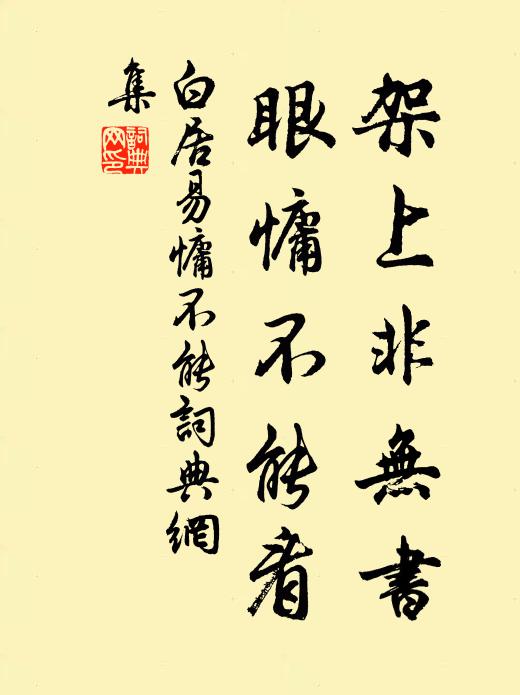 架上非無書
眼慵不能看
白居易慵不能詞典網
集
詞典
网印